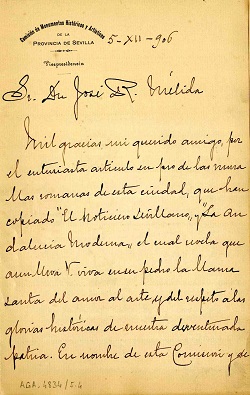 Comisión de Monumentos Históricos y Artísticos
DE LA
PROVINCIA DE SEVILLA
Vicepresidencia
5-XII-906
Sr. Dn José R. Mélida
Mil gracias, mi querido amigo, por
el entusiasta artículo en pro de las mura
llas romanas de esta ciudad, que han
copiado "El Noticiero Sevillano" y "La An
dalucía Moderna", el cual revela que
aun lleva V. viva en su pecho la llama
santa del amor al arte, y del respeto a las
glorias históricas de nuestra desventurada
patria. En nombre de esta Comisión y de
AGA. 4834/5.4